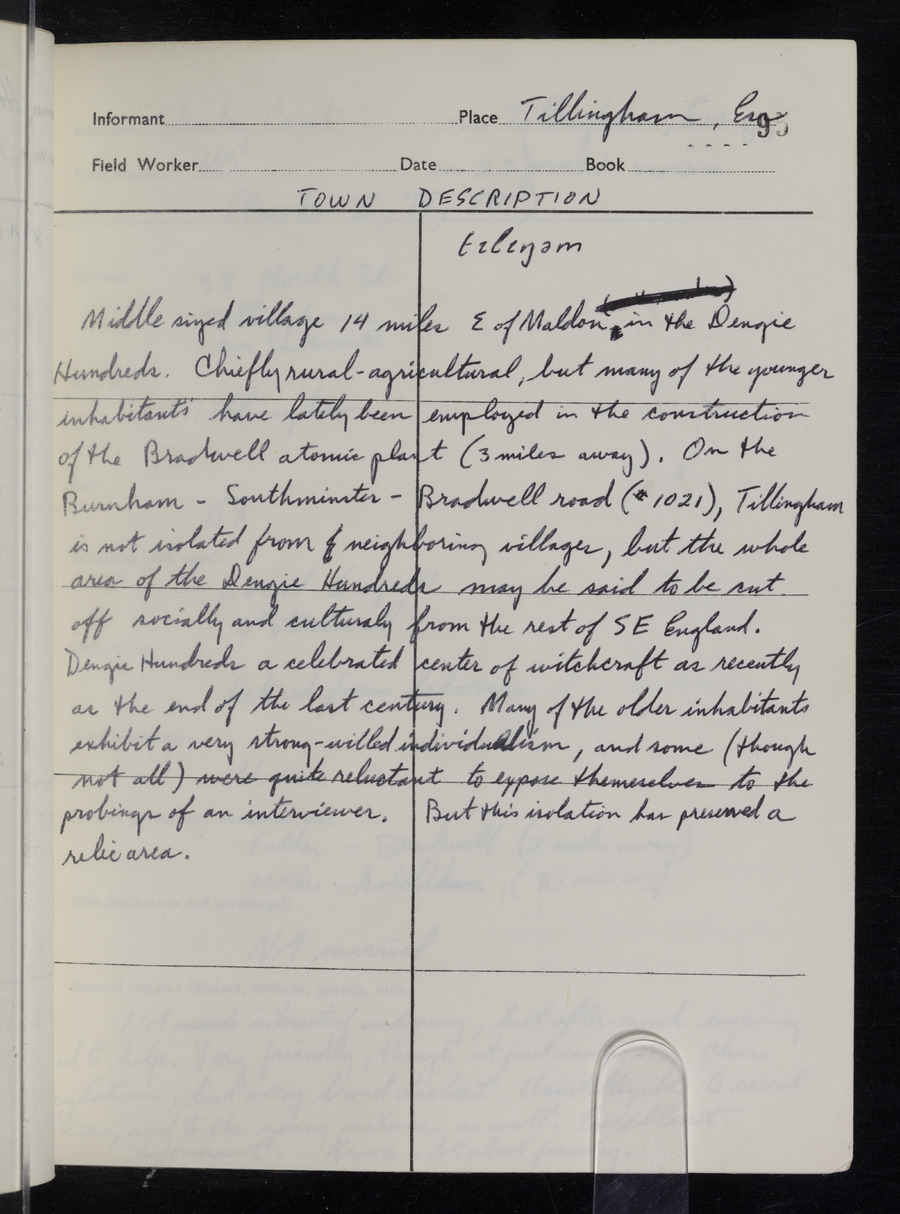 Informant Place Tillingham, Ess 95
Field Worker Date Book
TOWN DESCRIPTION
Middle sized village 14 miles E of Maldon, in the Dengie
Hundreds. Chiefly rural-agricultural, but many of the younger
inhabitants have lately been employed in the construction
of the Bradwell atomic plant (3 miles away). On the
Burnham - Southminster - Bradwell road (# 1021), Tillingham
is not isolated from neighboring villages, but the whole
area of the Dengie Hundreds may be said to be cut
off socially and culturaly from the rest of SE England.
Dengie Hundreds a celebrated center of witchcraft as recently
as the end of the last century. Many of the older inhabitants
exhibit a very strong-willed individualism, and some (though
not all) were quite reluctant to expose themeselves to the
probings of an interviewer. But this isolation has preserved a
relic area.